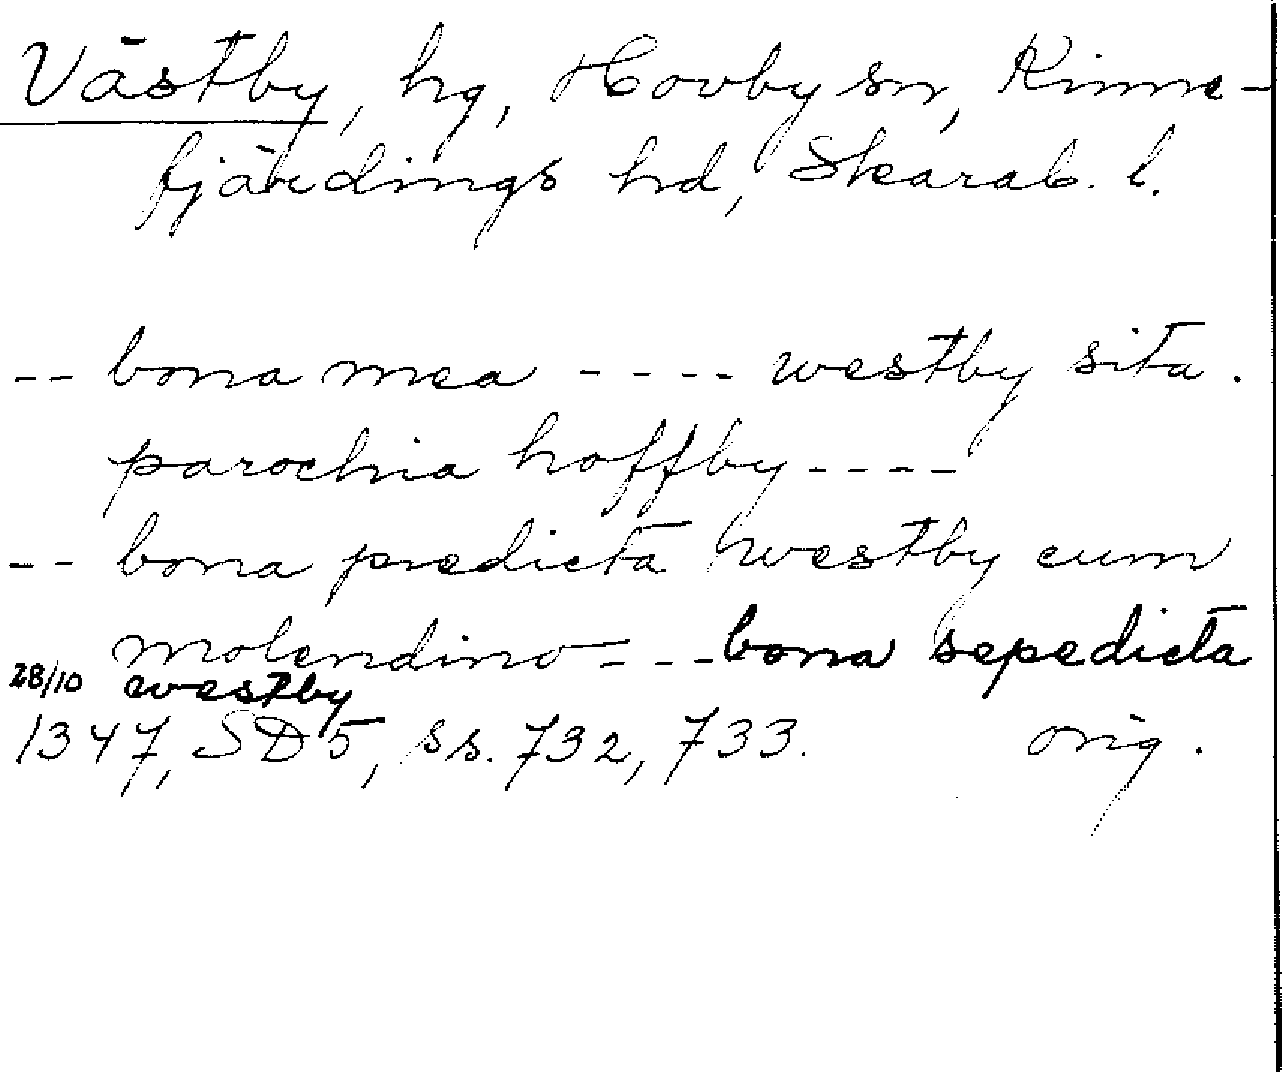 Västby, hg, Hovby sn, Kinne-
fjärdings hd, Skarab. l.
-- bona mea ---- westby sita.
parochia hoffby----
-- bona predicta westby cum
molendino---bona sepedicta
westby
28/10
1347, SD5, ss. 732, 733. orig.